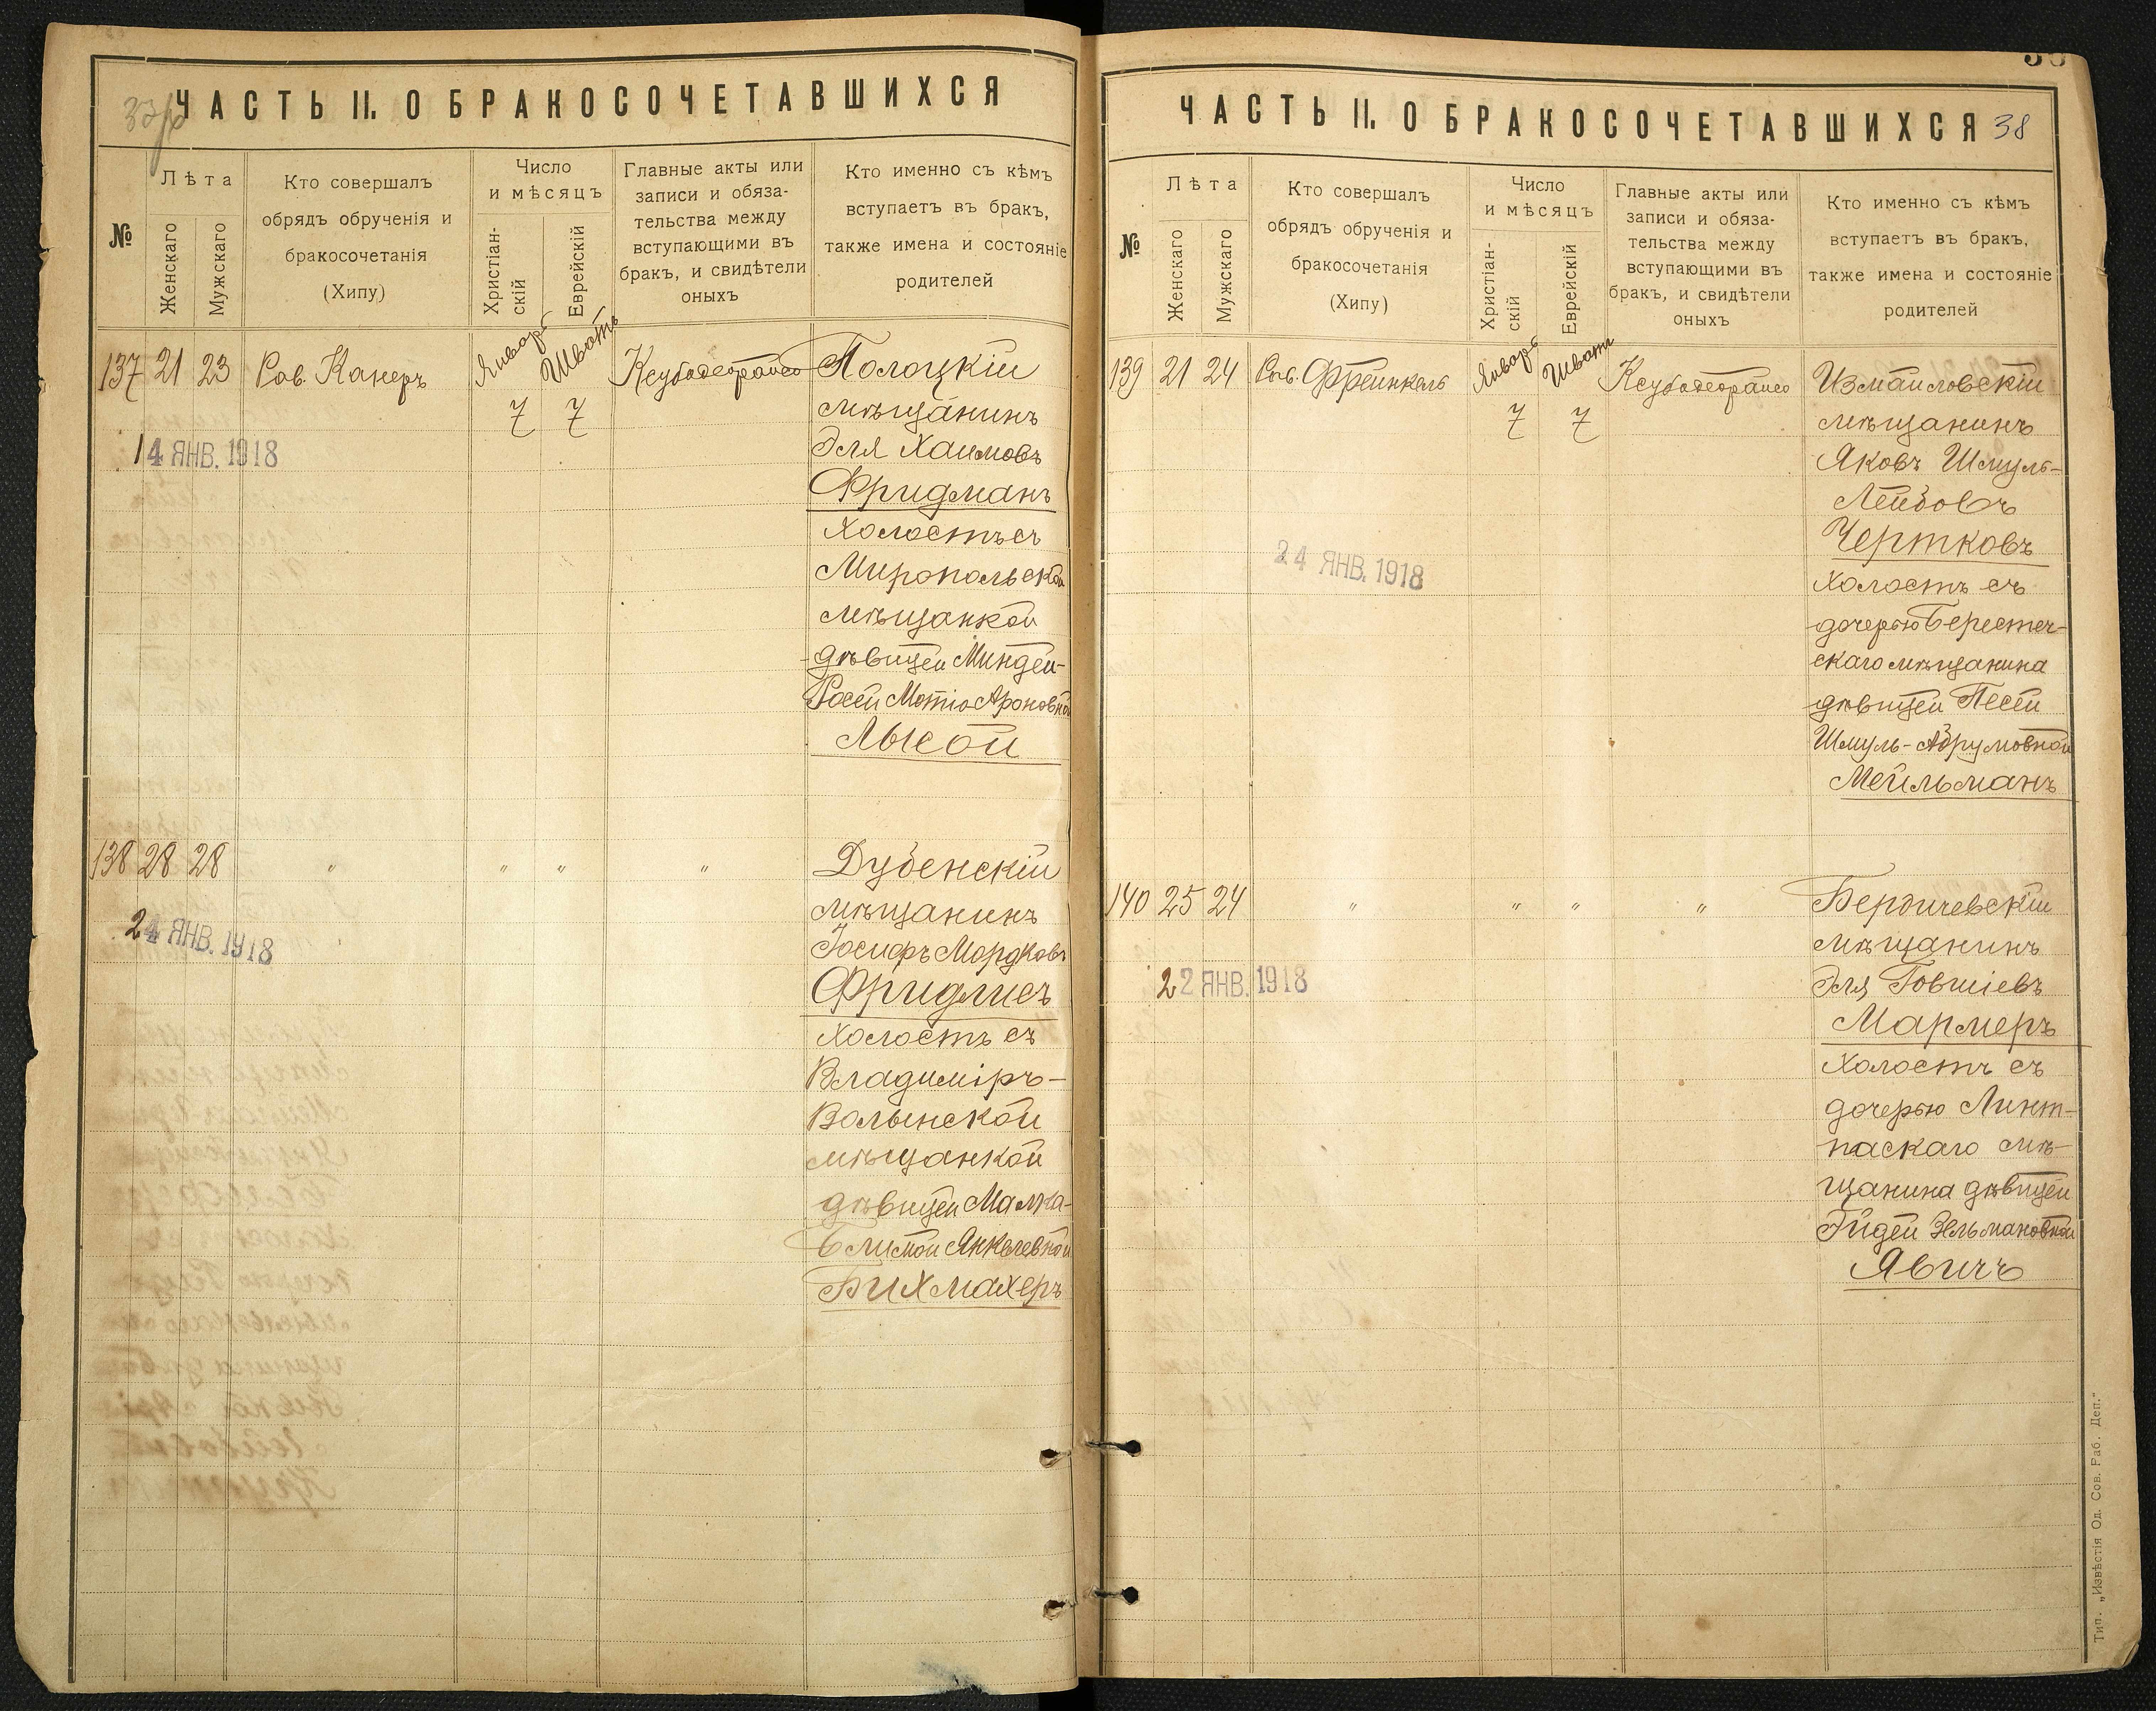 ЧАСТЬ II. О БРАКОСОЧЕТАВШИХСЯ
№
Лѣта
Женскаго
Мужскаго
Кто совершалъ
обрядъ обрученія и
бракосочетанія
(Хипу)
Число
и мѣсяцъ
Христіан-
скій
Еврейскій
Главные акты или
записи и обяза-
тельства между
вступающими въ
бракъ, и свидѣтели
оныхъ
Кто именно съ кѣмъ
вступаетъ въ бракъ,
также имена и состояніе
родителей
137 21 23 Рав. Канеръ
Январь
7
Шватъ
7
Ксубадеорайсо
Полоцкій
мѣщанинъ
Эля Хаимовъ
Фридманъ
холостъ съ
Миропольской
мѣщанкой
дѣвицей Миндей-
Росей Мотіо Ароновной
Лысой
14 ЯНВ. 1918
138 28 28 " " " "
Дубенскій
мѣщанинъ
Іосифъ Мордковъ
Фридлисъ
холостъ съ
Владиміръ-
Волынской
мѣщанкой
дѣвицей Малка-
Янкелевной
Бихмахеръ
24 ЯНВ. 1918
ЧАСТЬ II. О БРАКОСОЧЕТАВШИХСЯ 38
№
Лѣта
Женскаго
Мужскаго
Кто совершалъ
обрядъ обрученія и
бракосочетанія
(Хипу)
Число
и мѣсяцъ
Христіан-
скій
Еврейскій
Главные акты или
записи и обяза-
тельства между
вступающими въ
бракъ, и свидѣтели
оныхъ
Кто именно съ кѣмъ
вступаетъ въ бракъ,
также имена и состояніе
родителей
139 21 24 Рав. Френкель
Январь
7
Шватъ
7
Ксубадеорайсо
Измаиловскій
мѣщанинъ
Яковъ Шмуль-
Лейбовъ
Чертковъ
холостъ съ
дочерью Берестеч-
скаго мѣщанина
дѣвицей Песей
Шмуль-Абрумовной
Мейльманъ
24 ЯНВ. 1918
140 25 24 " " " "
Бердичевскій
мѣщанинъ
Эля Говшіевъ
Мармеръ
холостъ съ
дочерью Линт-
паскаго мѣ-
щанина дѣвицей
Эйдей Зельмановной
Явичъ
22 ЯНВ. 1918
Тип. „Извѣстія Од. Сов. Раб. Деп."